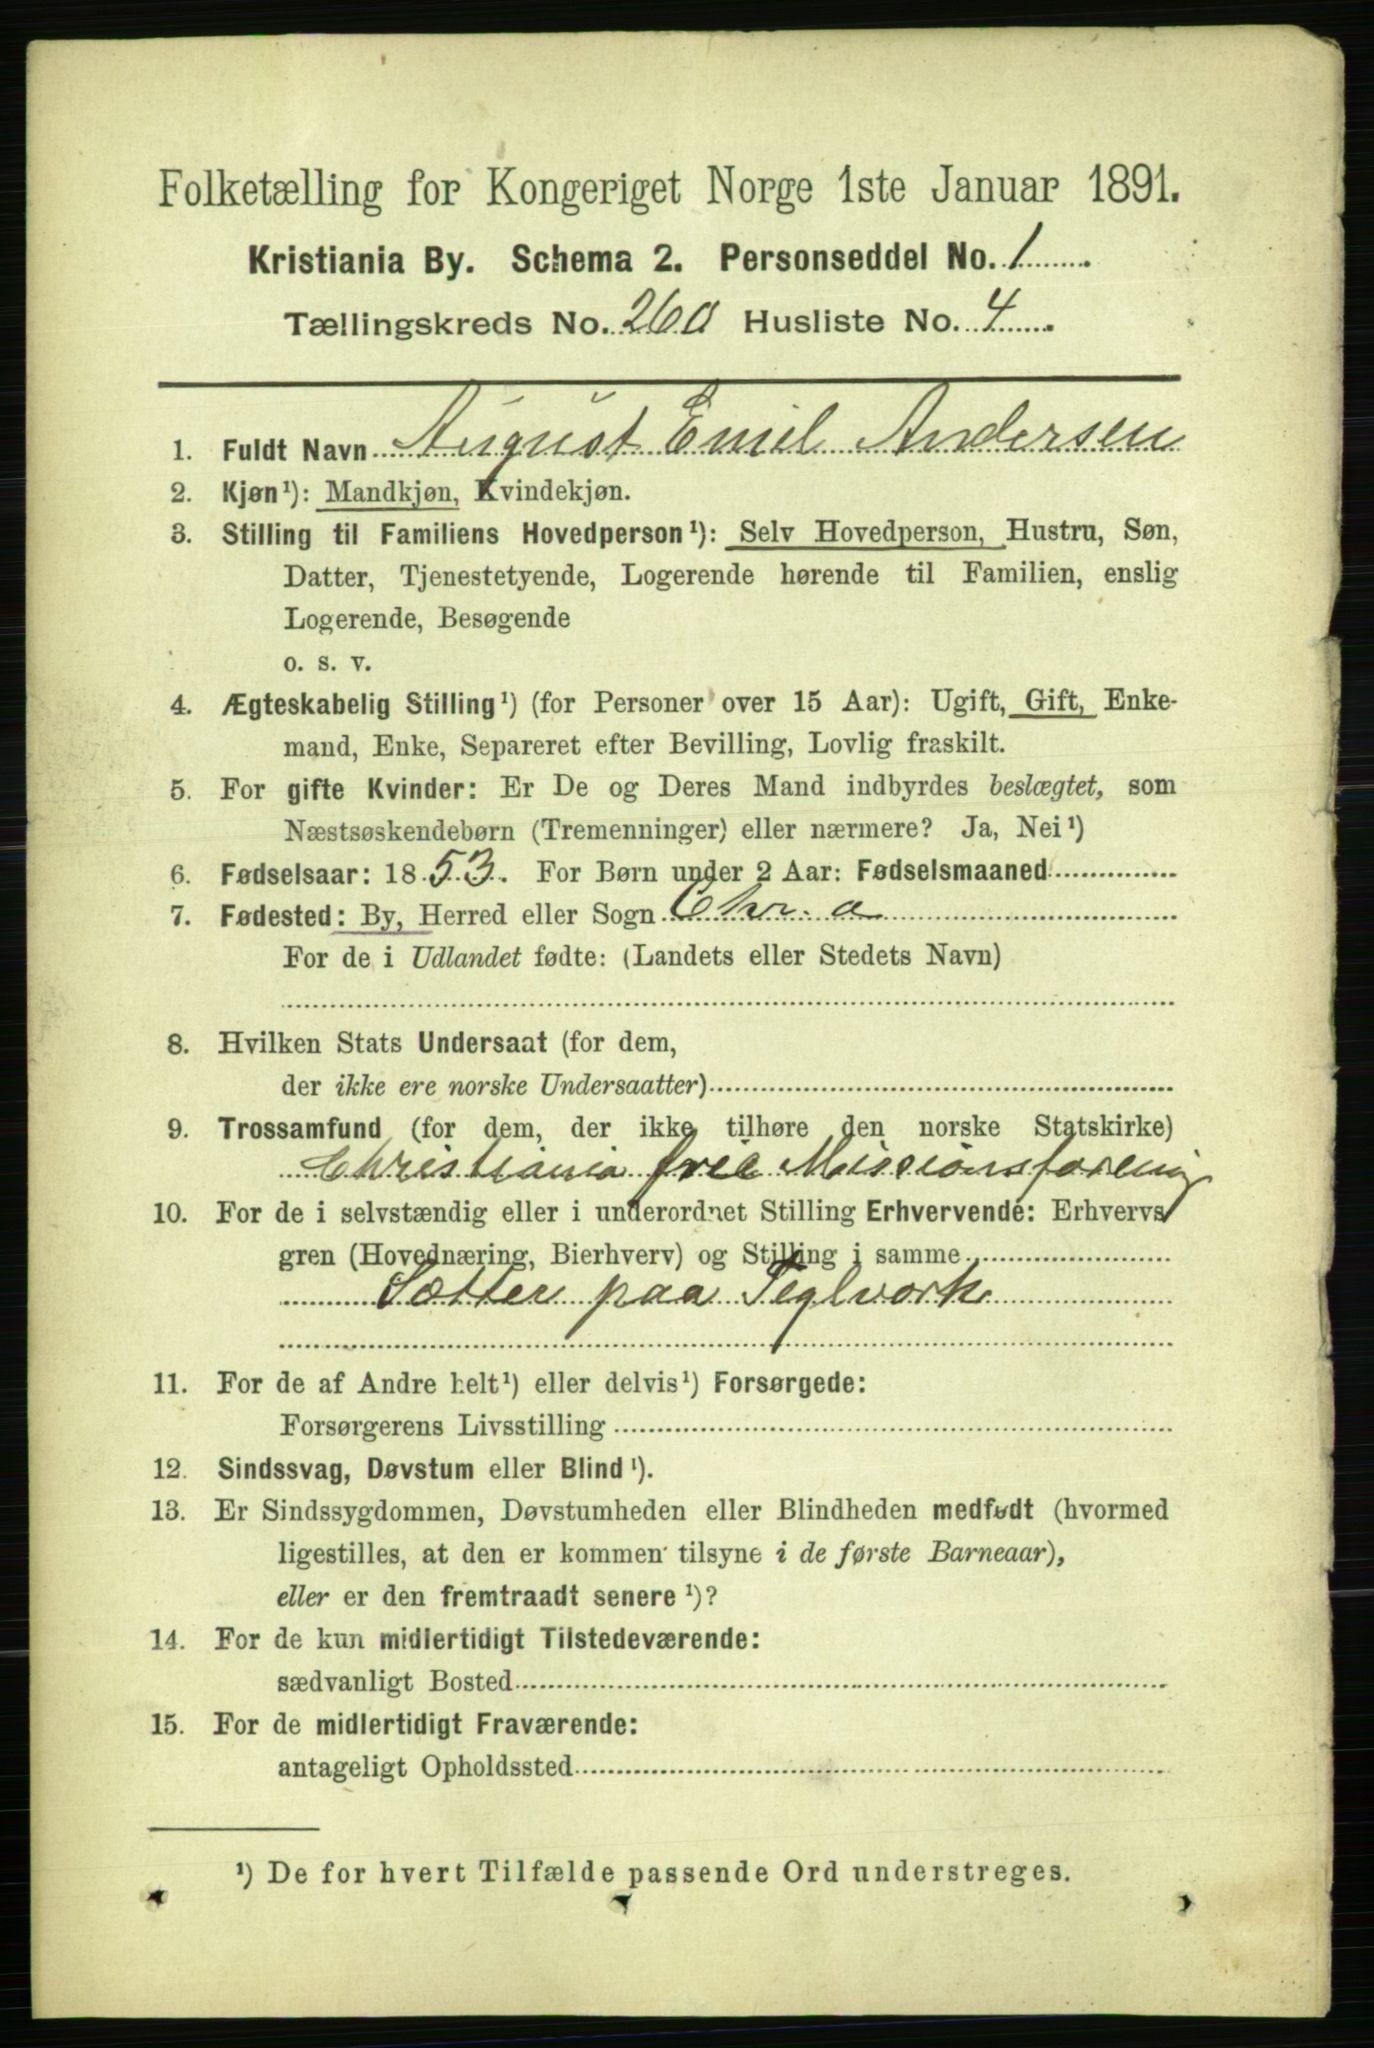 Folketælling for Kongeriget Norge 1ste Januar 1891.
Kristiania By. Schema 2. Personseddel No. 1
Tællingskreds No. 260 Husliste No. 4
1. Fuldt Navn August Emil Andersen
2. Kjøn¹): Mandkjøn, Kvindekjøn.
3. Stilling til Familiens Hovedperson¹): Selv Hovedperson, Hustru, Søn,
Datter, Tjenestetyende, Logerende hørende til Familien, enslig
Logerende, Besøgende
o. s. v.
4. Ægteskabelig Stilling¹) (for Personer over 15 Aar): Ugift, Gift, Enke-
mand, Enke, Separeret efter Bevilling, Lovlig fraskilt.
5. For gifte Kvinder: Er De og Deres Mand indbyrdes beslægtet, som
Næstsøskendebørn (Tremenninger) eller nærmere? Ja, Nei¹)
6. Fødselsaar: 1853. For Børn under 2 Aar: Fødselsmaaned
7. Fødested: By, Herred eller Sogn Chr. a
For de i Udlandet fødte: (Landets eller Stedets Navn)
8. Hvilken Stats Undersaat (for dem,
der ikke ere norske Undersaatter)
9. Trossamfund (for dem, der ikke tilhøre den norske Statskirke)
Christiania frie Missionsforening
10. For de i selvstændig eller i underordnet Stilling Erhvervende: Erhvervs
gren (Hovednæring, Bierhverv) og Stilling i samme
Sætter paa Teglværk
11. For de af Andre helt¹) eller delvis¹) Forsørgede:
Forsørgerens Livsstilling
12. Sindssvag, Døvstum eller Blind¹).
13. Er Sindssygdommen, Døvstumheden eller Blindheden medfødt (hvormed
ligestilles, at den er kommen tilsyne i de første Barneaar),
eller er den fremtraadt senere¹)?
14. For de kun midlertidigt Tilstedeværende:
sædvanligt Bosted
15. For de midlertidigt Fraværende:
antageligt Opholdssted
¹) De for hvert Tilfælde passende Ord understreges.